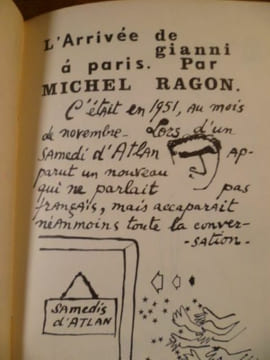 L'Arrivée de
gianni
á paris. Par
MICHEL RAGON.
C'était en 1951, au mois
de novembre. Lors d'un
SAMEDi d'ATLAN AP-
parut un nouveau
qui ne parlait pas
FRANÇAiS, mais accaparait
néAnmoins toute la conver-
-SATION.
SAMEDiS
d'ATLAN